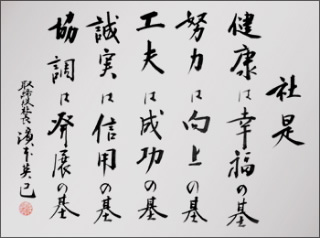 社是
健康は幸福の基
努力は向上の基
工夫は成功の基
誠実は信用の基
協調は発展の基
取締役社長 濱本英己